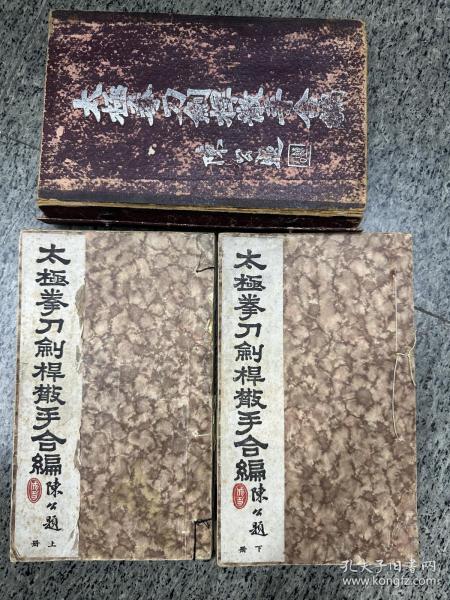 太極拳刀劍桿散手合編
陳公題
太極拳刀劍桿散手合編
陳公題
上册
太極拳刀劍桿散手合編
陳公題
下册
孔夫子旧书网
www.kongfz.com